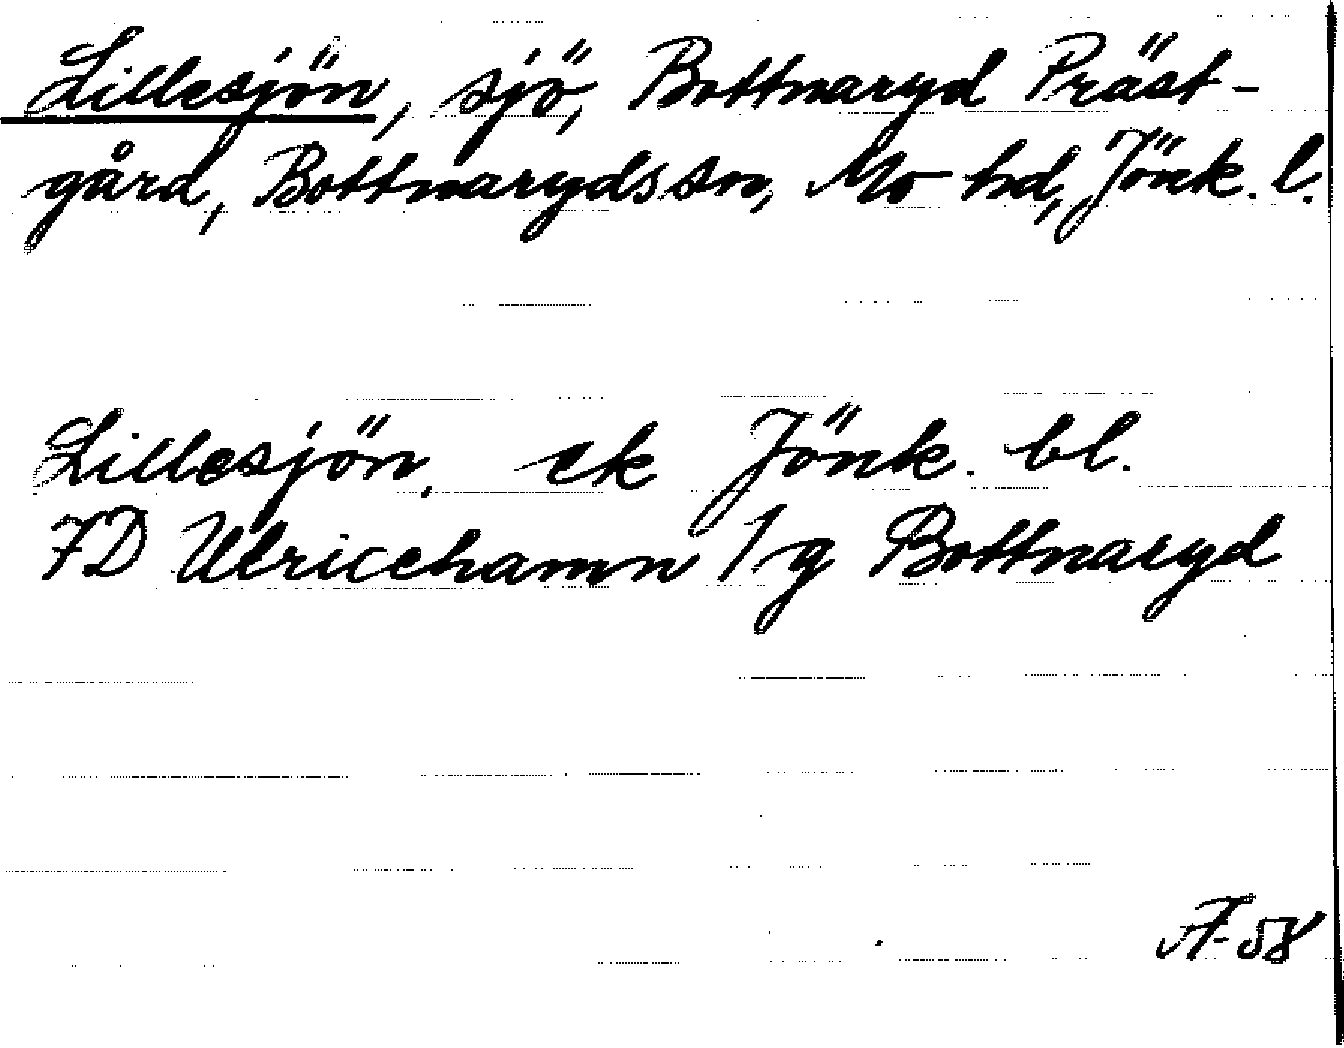 Lillesjön, sjö, Bottnaryd Präst-
gård, Bottnaryds sn, Mo hd, Jönk. l.
Lillesjön, ek Jönk. bl.
7D Ulricehamn / g Bottnaryd
A-58